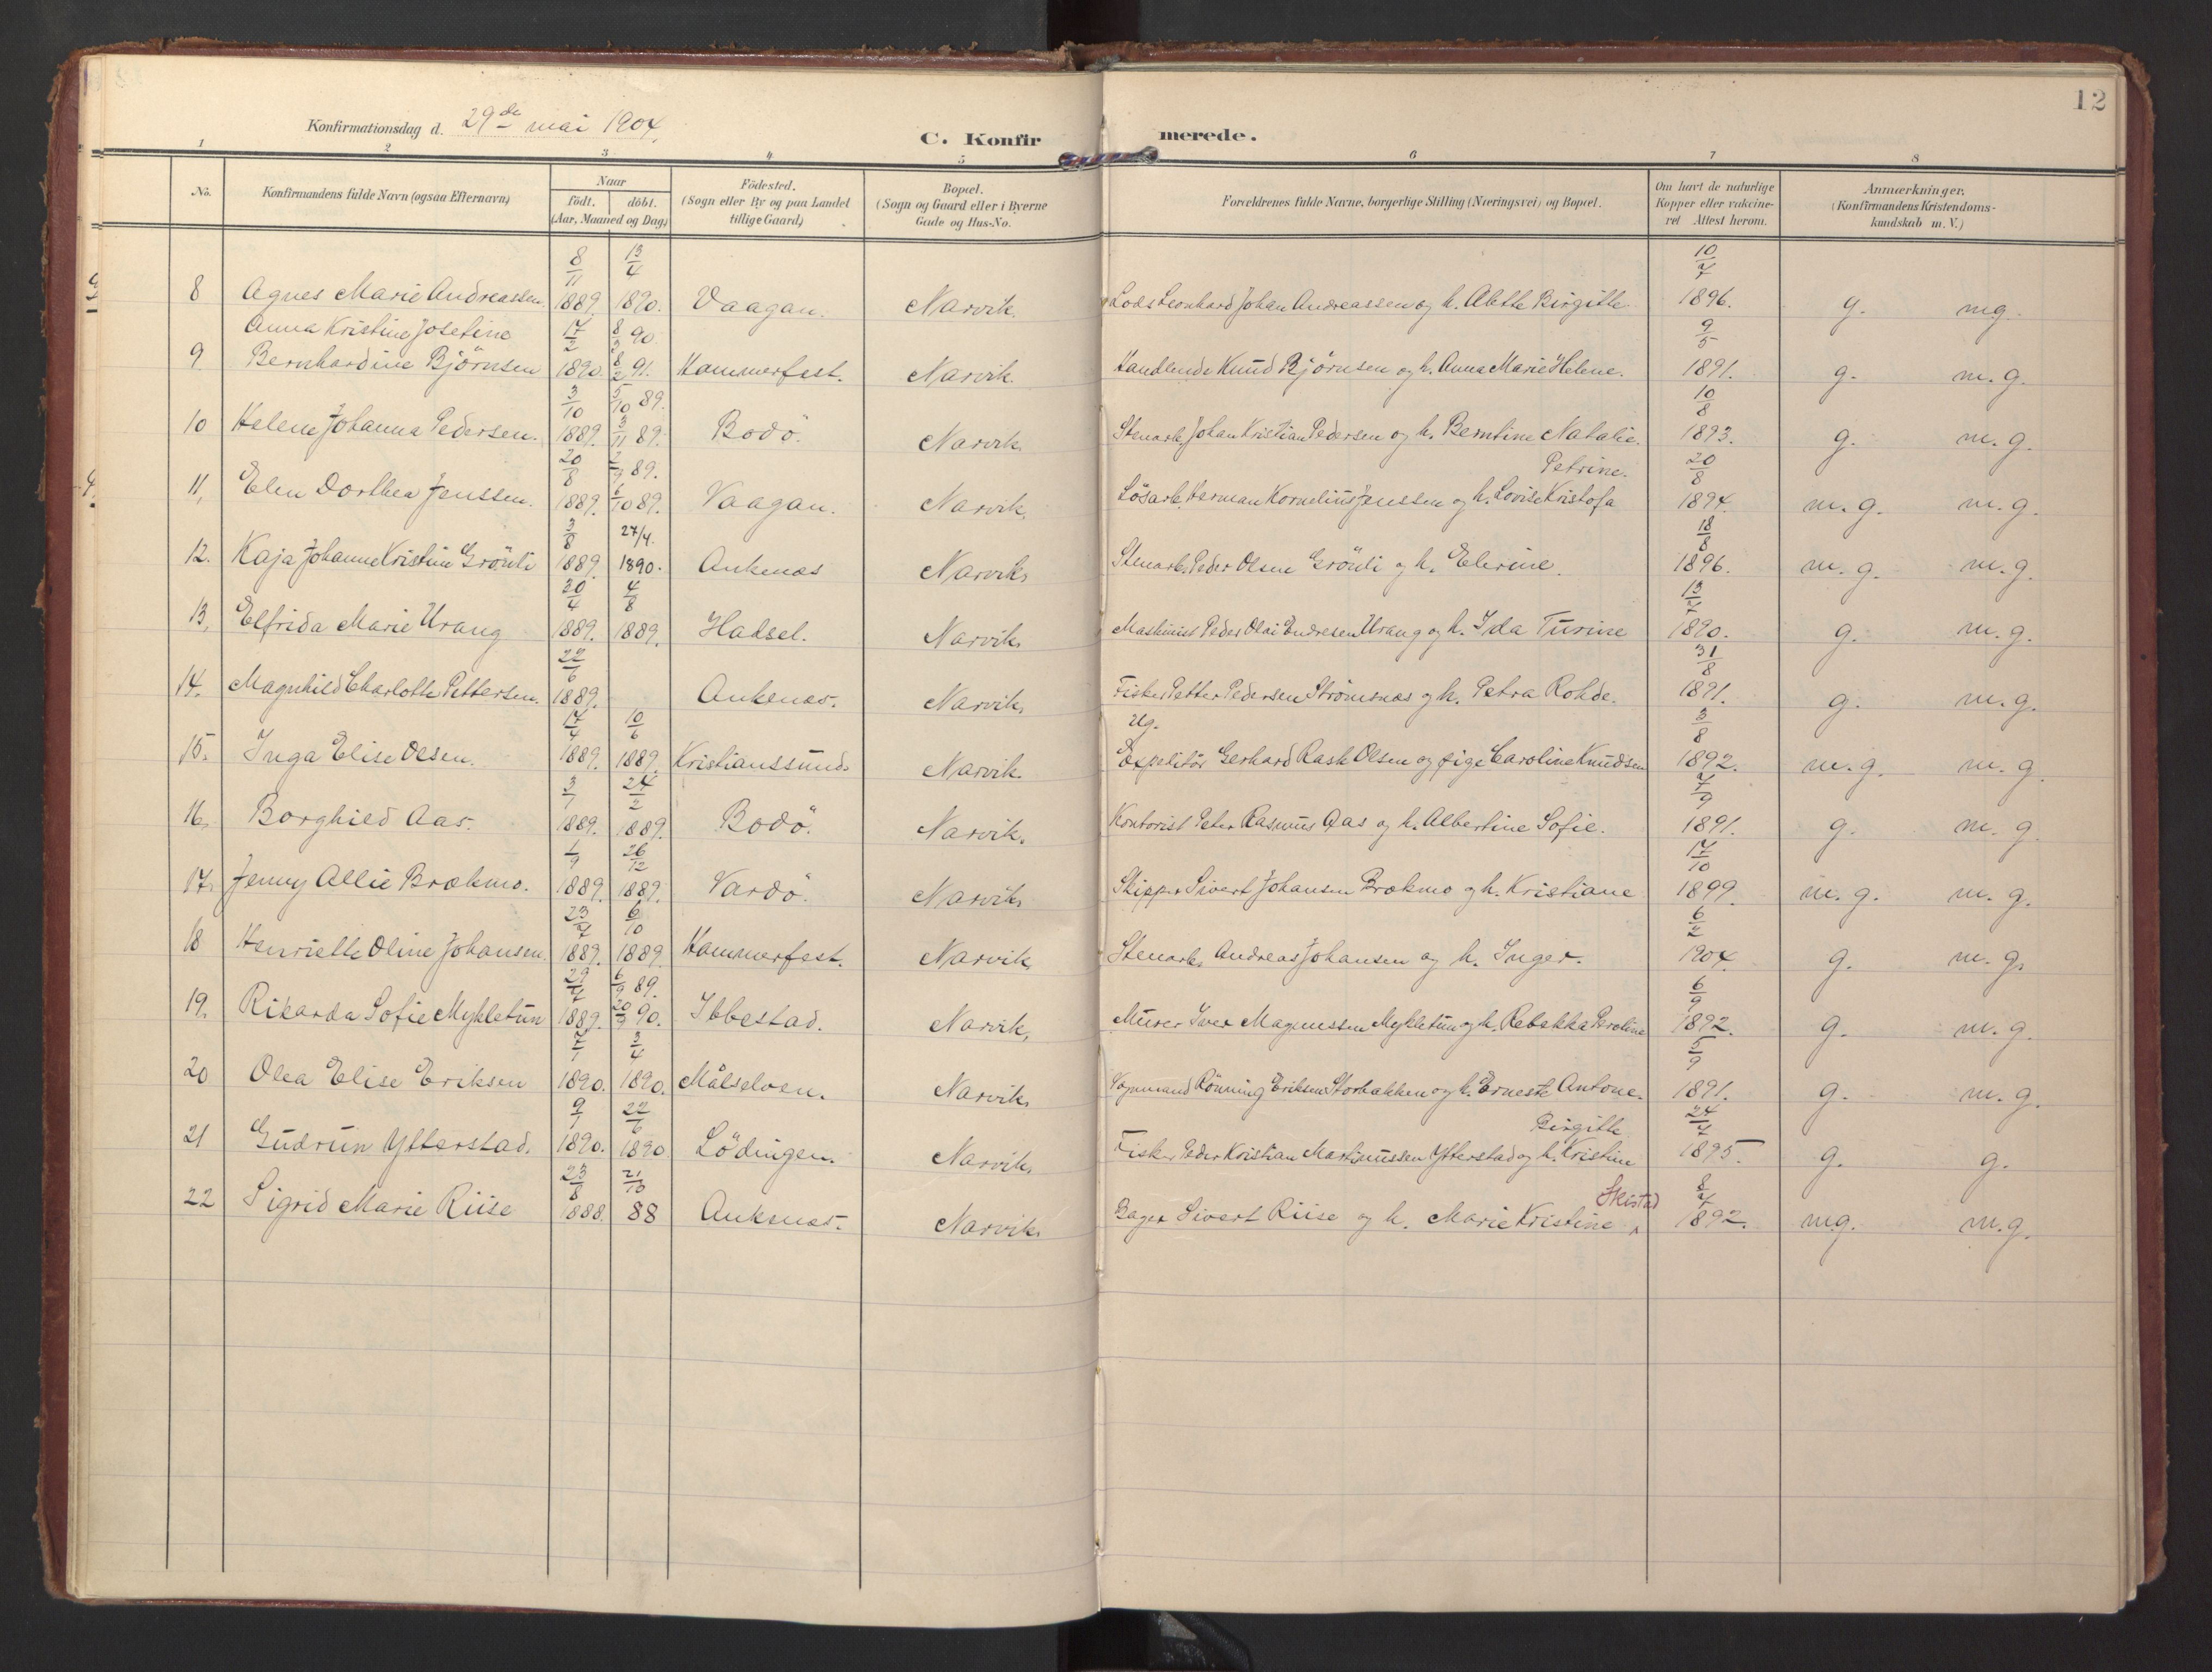 12
Konfirmationsdag d. 29de mai 1904.
C. Konfirmerede.
1 2 3 4 5 6 7 8
No. Konfirmandens fulde Navn (ogsaa Efternavn) Naar födt. döbt. (Aar, Maaned og Dag) Födested. (Sogn eller By og paa Landet tillige Gaard) Bopæl. (Sogn og Gaard eller i Byerne Gade og Hus-No. Forældrenes fulde Navne, borgerlige Stilling (Næringsvei) og Bopæl. Om havt de naturlige Kopper eller vakcineret Attest herom. Anmærkninger. (Konfirmandens Kristendomskundskab m. V.)
8/11 13/4 10/7
8 Agnes Marie Andreassen. 1889. 1890. Vaagan. Narvik. Lods Leonhard Johan Andreassen og h. Abethe Birgitte 1896. g. mg.
Anna Kristine Josefine 17/2 8/3 90. 9/5
9. Bernhardine Björnsen 1890. 8/2 91. Hammerfest. Narvik. Handlende Knud Björnsen og h. Anna Marie Helene. 1891. g. m. g.
3/10 5/10 89. 10/8
10 Helene Johanna Pedersen. 1889. 3/11 89. Bodö. Narvik. Stenarb. Johan Kristian Pedersen og h. Berntine Natalie. 1893. g. m. g.
20/8 89. Petrine. 20/8
11. Elen Dorthea Jenssen. 1889. 6/10 89. Vaagan. Narvik. Lösarb. Herman Kornelius Jenssen og h. Lovise Kristofa 1894. m. g. m. g.
3/8 27/4. 18/8
12. Kaja Johanne Kristine Grönli 1889. 1890. Ankenæs Narvik. Stenarb. Peder Olsen Grönli og h. Elerine. 1896. m. g. m. g.
20/4 4/8
13. Elfrida Marie Urang 1889. 1889. Hadsel. Narvik. Maskinist Peder Olai Endresen Urang og h. Ida Turine 1890. g. m. g.
22/6 31/8
14. Magnhild Charlotte Pettersen. 1889. Ankenæs. Narvik. Fisker Petter Pedersen Strömsnæs og h. Petra Rohde. 1891. g. m. g.
17/4 10/6 Ug. 3/8
15. Inga Elise Olsen. 1889. 1889. Kristianssund. Narvik. Expeditör Gerhard Rask Olsen og pige Caroline Knudsen 1892. m. g. m. g.
3/1 24/2 7/9
16. Borghild Aas. 1889. 1889. Bodö. Narvik. Kontorist Peter Rasmus Aas og h. Albertine Sofie. 1891. g. m. g.
1/9 26/12 17/10
17. Jenny Allie Brækmo. 1889. 1889. Vardö. Narvik. Skipper Sivert Johansen Brækmo og h. Kristiane 1899. m. g. m. g.
23/7 6/10 6/2
18 Henriette Oline Johansen. 1889. 1889. Hammerfest. Narvik. Stenarb. Andreas Johansen og h. Inger. 1904. g. m. g.
29/7 6/9 89. 6/9
19. Rikarda Sofie Mykletun 1889. 20/9 90. Ibbestad. Narvik. Murer Iver Magnussen Mykletun og h. Rebekka Beroline 1892. g. m. g.
7/1 3/4 5/9
20 Olea Elise Eriksen 1890. 1890. Målselven. Narvik. Vognmand Rönning Eriksen Storbakken og h. Erneste Antone. 1891. g. m. g.
9/1 22/6 Birgitte 24/7
21 Gudrun Ytterstad. 1890. 1890. Lödingen. Narvik. Fisker Peder Kristian Martinussen Ytterstad og h. Kristine 1895. g. g.
23/8 21/10 Skistad 8/7
22 Sigrid Marie Riise 1888. 88 Ankenæs. Narvik. Bager Sivert Riise og h. Marie Kristine 1892. mg. m.g.